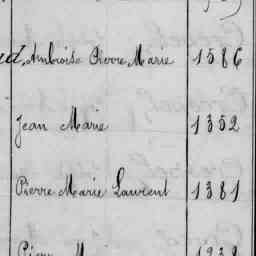 Ambroise Pierre Marie 1586
Jean Marie 1352
Pierre Marie Laurent 1381